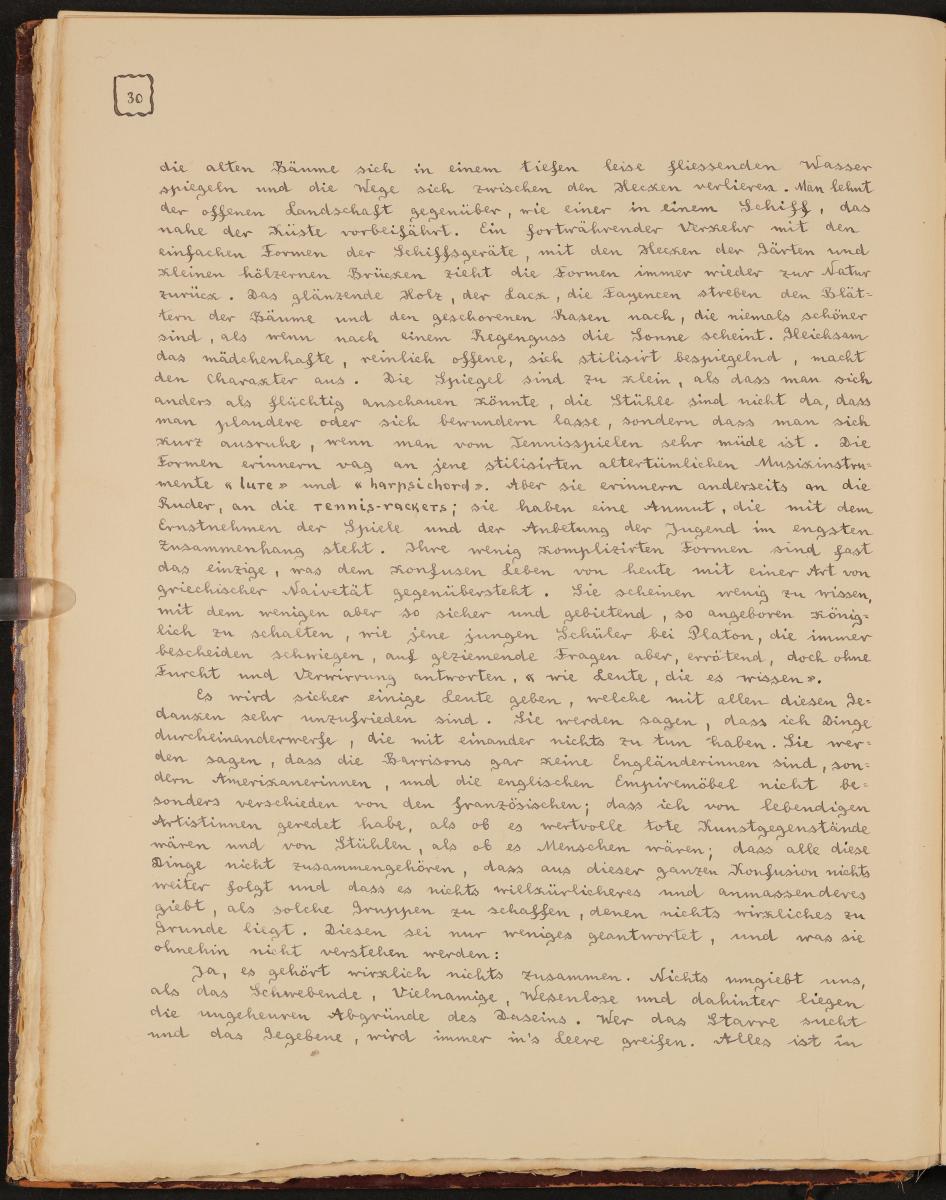 30
die alten Bäume sich in einem tiefen leise fliessenden Wasser
spiegeln und die Wege sich zwischen den Hecken verlieren. Man lehnt
der offenen Landschaft gegenüber, wie einer in einem Schiff, das
nahe der Küste vorbeifährt. Ein fortwährender Verkehr mit den
einfachen Formen der Schiffsgeräte, mit den Hecken der Gärten und
kleinen hölzernen Brücken zieht die Formen immer wieder zur Natur
zurück. Das glänzende Holz, der Lack, die Fayencen streben den Blät=
tern der Bäume und den geschorenen Rasen nach, die niemals schöner
sind, als wenn nach einem Regenguss die Sonne scheint. Gleichsam
das mädchenhafte, reinlich offene, sich stilisirt bespiegelnd, macht
den Charakter aus. Die Spiegel sind zu klein, als dass man sich
anders als flüchtig anschauen könnte, die Stühle sind nicht da, dass
man plaudere oder sich bewundern lasse, sondern dass man sich
kurz ausruhe, wenn man vom Tennisspielen sehr müde ist. Die
Formen erinnern vag an jene stilisirten altertümlichen Musikinstru=
mente « lute » und « harpsichord ». Aber sie erinnern anderseits an die
Ruder, an die tennis-rackets; sie haben eine Anmut, die mit dem
Ernstnehmen der Spiele und der Anbetung der Jugend im engsten
Zusammenhang steht. Ihre wenig komplizirten Formen sind fast
das einzige, was dem konfusen Leben von heute mit einer Art von
griechischer Naivetät gegenübersteht. Sie scheinen wenig zu wissen,
mit dem wenigen aber so sicher und gebietend, so angeboren könig=
lich zu schalten, wie jene jungen Schüler bei Platon, die immer
bescheiden schwiegen, auf geziemende Fragen aber, errötend, doch ohne
Furcht und Verwirrung antworten, « wie Leute, die es wissen ».
Es wird sicher einige Leute geben, welche mit allen diesen Ge=
danken sehr unzufrieden sind. Sie werden sagen, dass ich Dinge
durcheinanderwerfe, die mit einander nichts zu tun haben. Sie wer=
den sagen, dass die Barrisons gar keine Engländerinnen sind, son=
dern Amerikanerinnen, und die englischen Empiremöbel nicht be=
sonders verschieden von den französischen; dass ich von lebendigen
Artistinnen geredet habe, als ob es wertvolle tote Kunstgegenstände
wären und von Stühlen, als ob es Menschen wären; dass alle diese
Dinge nicht zusammengehören, dass aus dieser ganzen Konfusion nichts
weiter folgt und dass es nichts willkürlicheres und anmassenderes
giebt, als solche Gruppen zu schaffen, denen nichts wirkliches zu
Grunde liegt. Diesen sei nur weniges geantwortet, und was sie
ohnehin nicht verstehen werden:
Ja, es gehört wirklich nichts zusammen. Nichts umgiebt uns,
als das Schwebende, Vielnamige, Wesenlose und dahinter liegen
die ungeheuren Abgründe des Daseins. Wer das Starre sucht
und das Gegebene, wird immer in's Leere greifen. Alles ist in